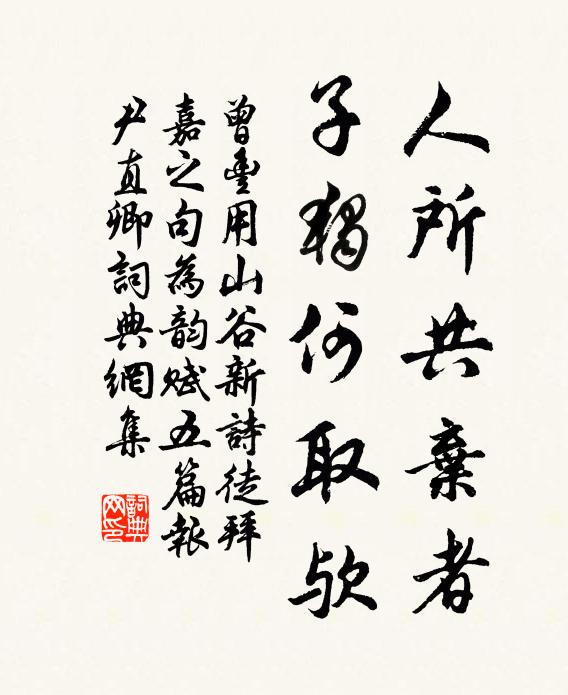 人所共棄者
子獨何取歟
曾豐用山谷新詩徒拜
嘉之句為韵賦五篇報
尹直卿詞典網集
詞典网印